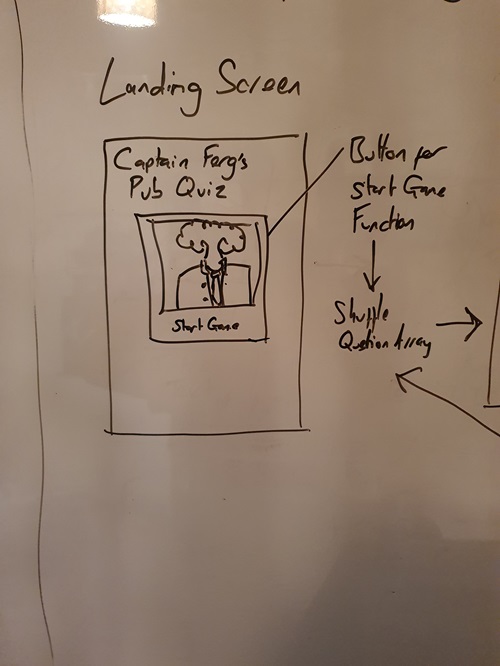 Landing Screen
Captain Ferg's
Pub Quiz
Start Game
Button for
Start Game
Function
Shuffle
Question Array